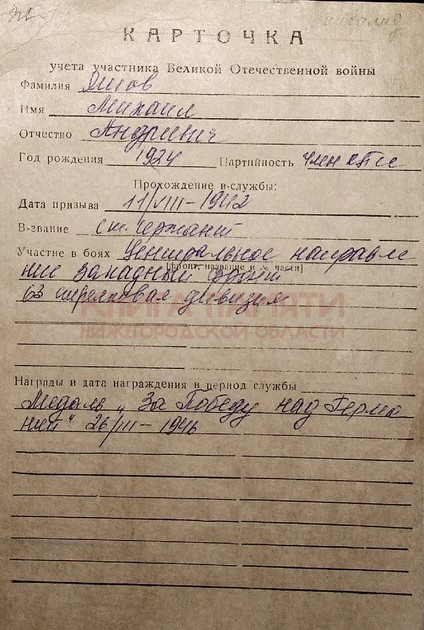 инвалид
КАРТОЧКА
учета участника Великой Отечественной войны
Фамилия
Имя Михаил
Отчество Андреевич
Год рождения 1924 Партийность член КПСС
Прохождение в-службы:
Дата призыва 11/VIII-1942
В-звание ст. сержант
Участие в боях Центральное направле
[фронт, название и № части]
ние Западный фронт
63 стрелковая дивизия
КНИГА ПАМЯТИ
НИЖЕГОРОДСКОЙ ОБЛАСТИ
Награды и дата награждения в период службы
Медаль „За Победу над Герма
нией" 26/III-1946